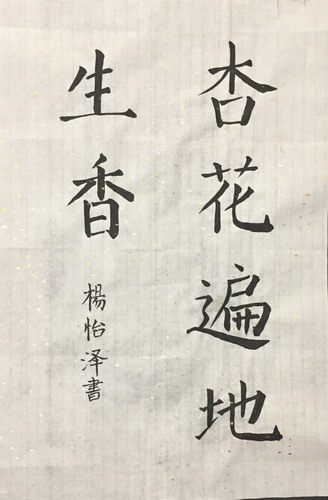 杏花遍地
生香
楊怡泽書